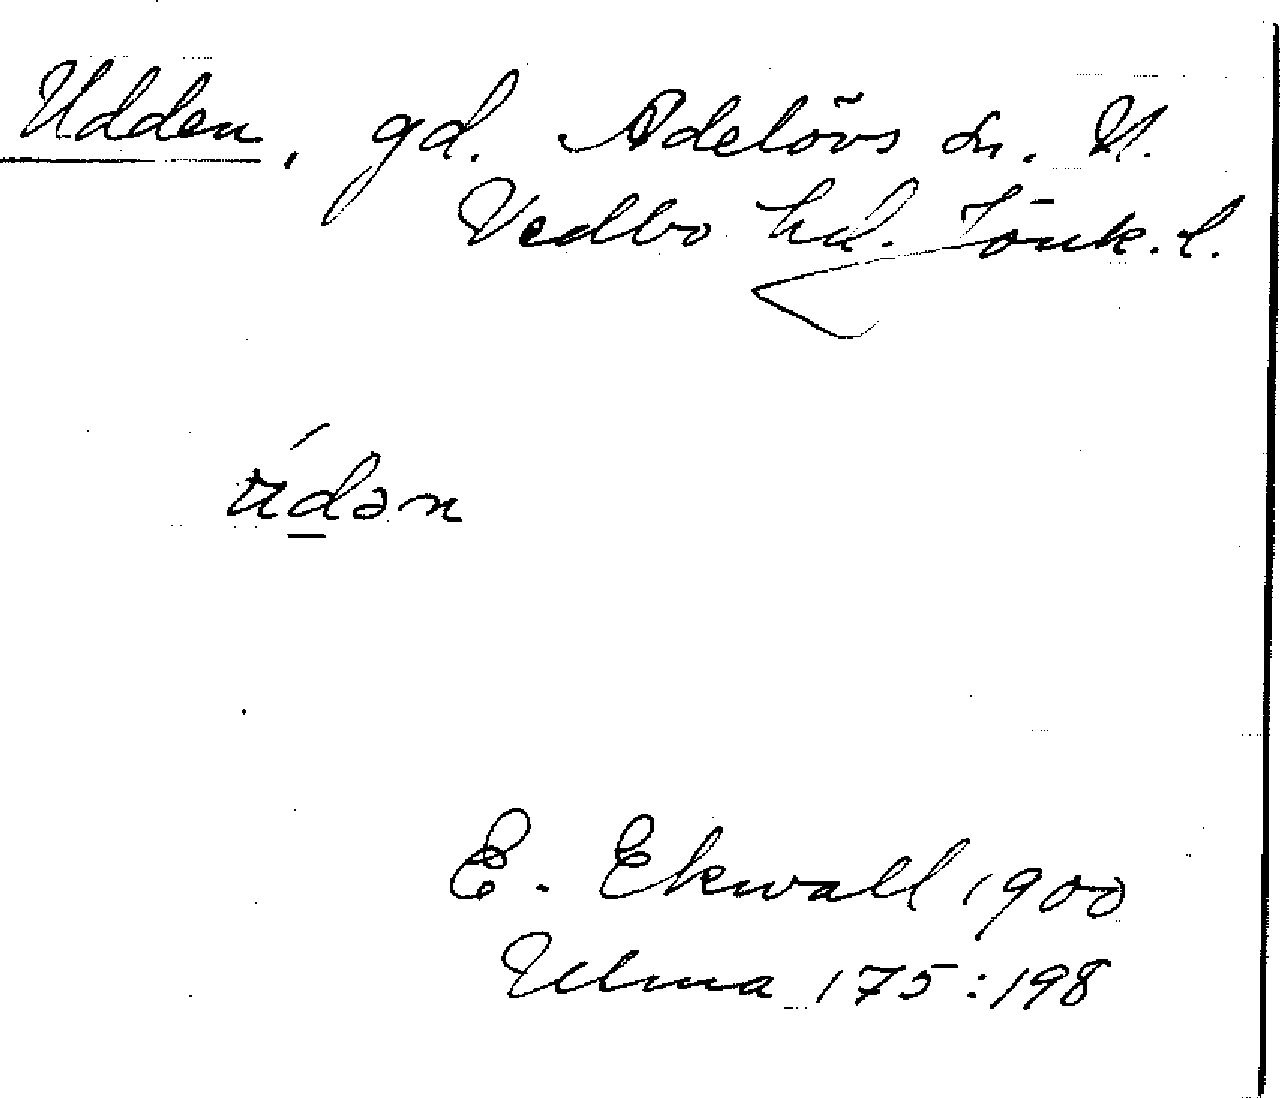 Udden, gd. Adelövs sn. N.
Vedbo hd. Jönk. l.
údən
E. Ekwall 1900
Ulma 175:198